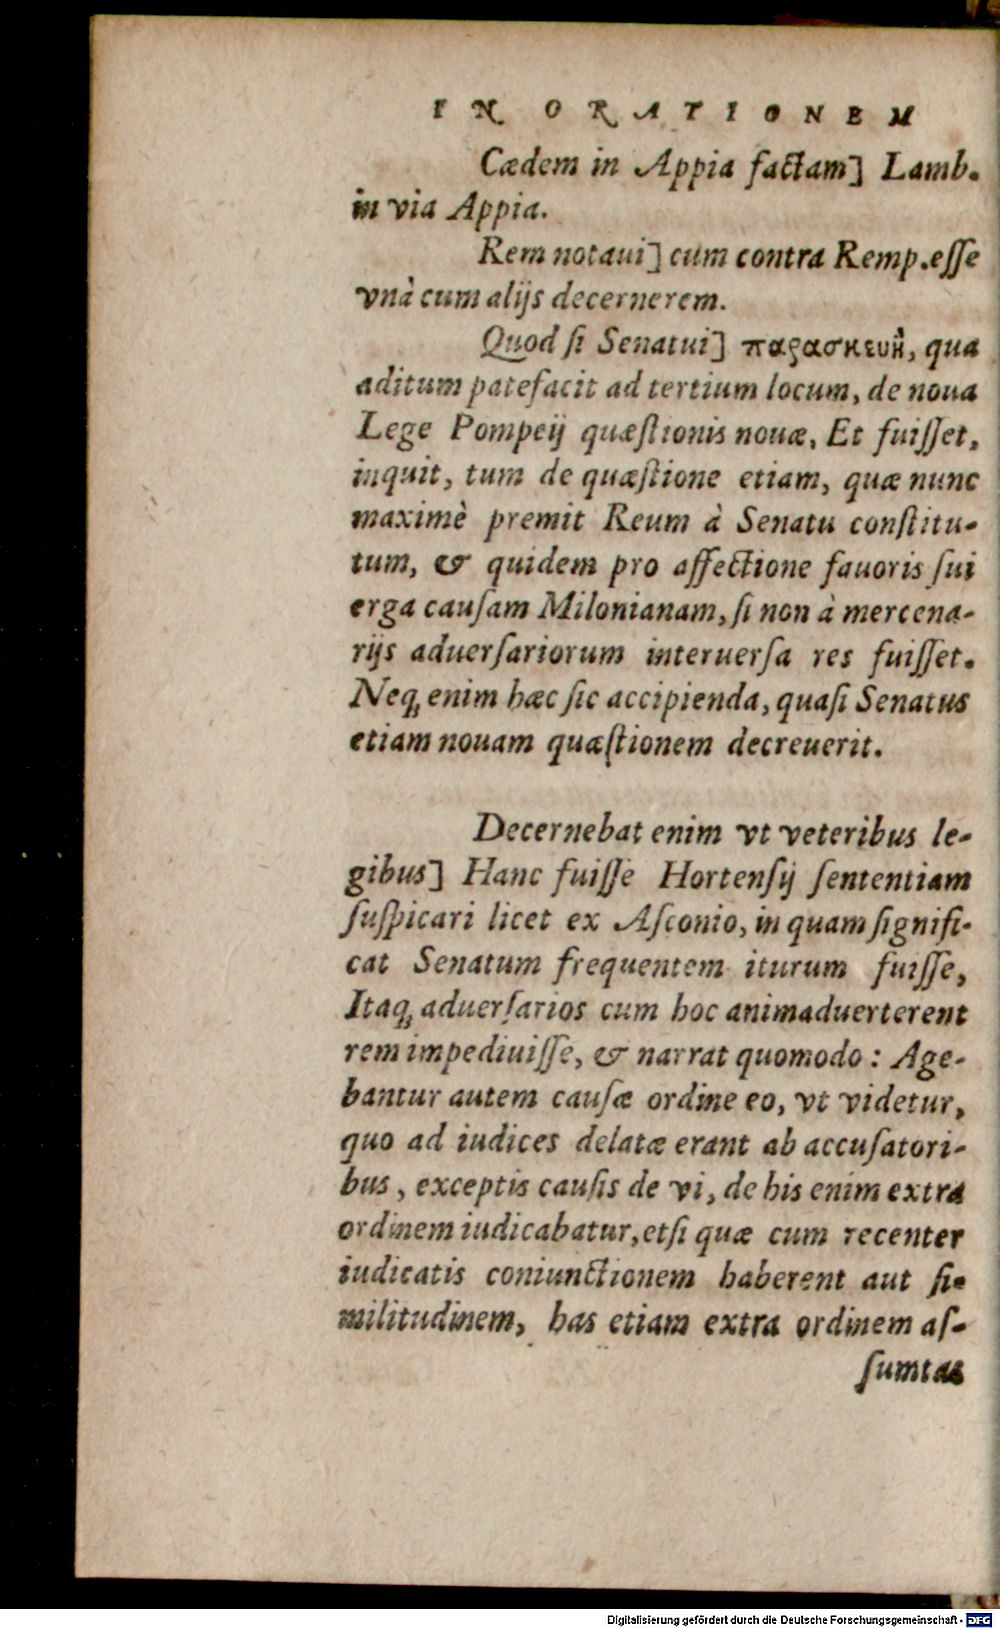 IN ORATIONEM
Cædem in Appia factam] Lamb.
in via Appia.
Rem notaui] cum contra Remp. esse
vnà cum alijs decernerem.
Quod si Senatui] παρασκευὴ, qua
aditum patefacit ad tertium locum, de noua
Lege Pompeij quæstionis nouæ, Et fuisset,
inquit, tum de quæstione etiam, quæ nunc
maximè premit Reum à Senatu constitu-
tum, & quidem pro affectione fauoris sui
erga causam Milonianam, si non à mercena-
rijs aduersariorum interuersa res fuisset.
Neq; enim hæc sic accipienda, quasi Senatus
etiam nouam quæstionem decreuerit.
Decernebat enim vt veteribus le-
gibus] Hanc fuisse Hortensij sententiam
suspicari licet ex Asconio, in quam signifi-
cat Senatum frequentem iturum fuisse,
Itaq; aduersarios cum hoc animaduerterent
rem impediuisse, & narrat quomodo: Age-
bantur autem causæ ordine eo, vt videtur,
quo ad iudices delatæ erant ab accusatori-
bus, exceptis causis de vi, de his enim extra
ordinem iudicabatur, etsi quæ cum recenter
iudicatis coniunctionem haberent aut si-
militudinem, has etiam extra ordinem as-
sumtas
Digitalisierung gefördert durch die Deutsche Forschungsgemeinschaft - DFG